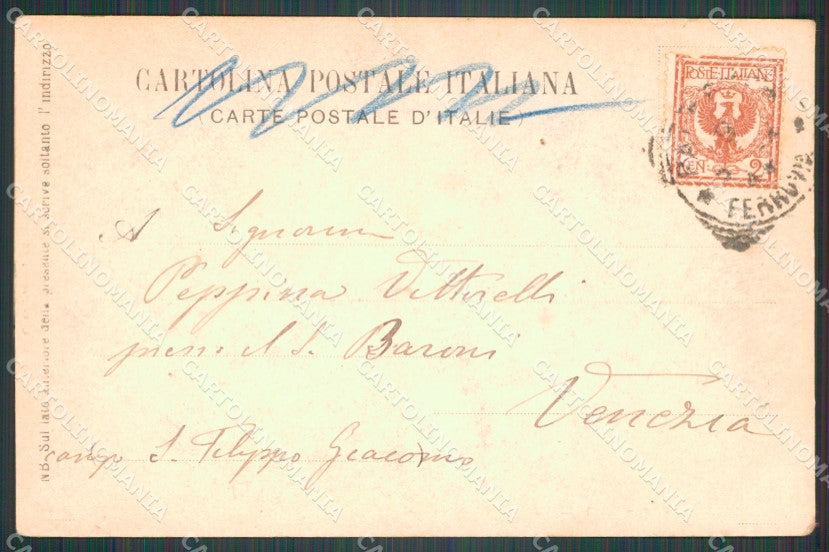 CARTOLINA POSTALE ITALIANA
(CARTE POSTALE D'ITALIE)
POSTE ITALIANE
CEN. 2
FERROVIA
A Signorina
Peppina Vittorelli
presso il S. Baroni
Venezia
campo S. Filippo Giacomo
NB. Sul lato anteriore della presente si scrive soltanto l'indirizzo
CARTOLINOMANIA